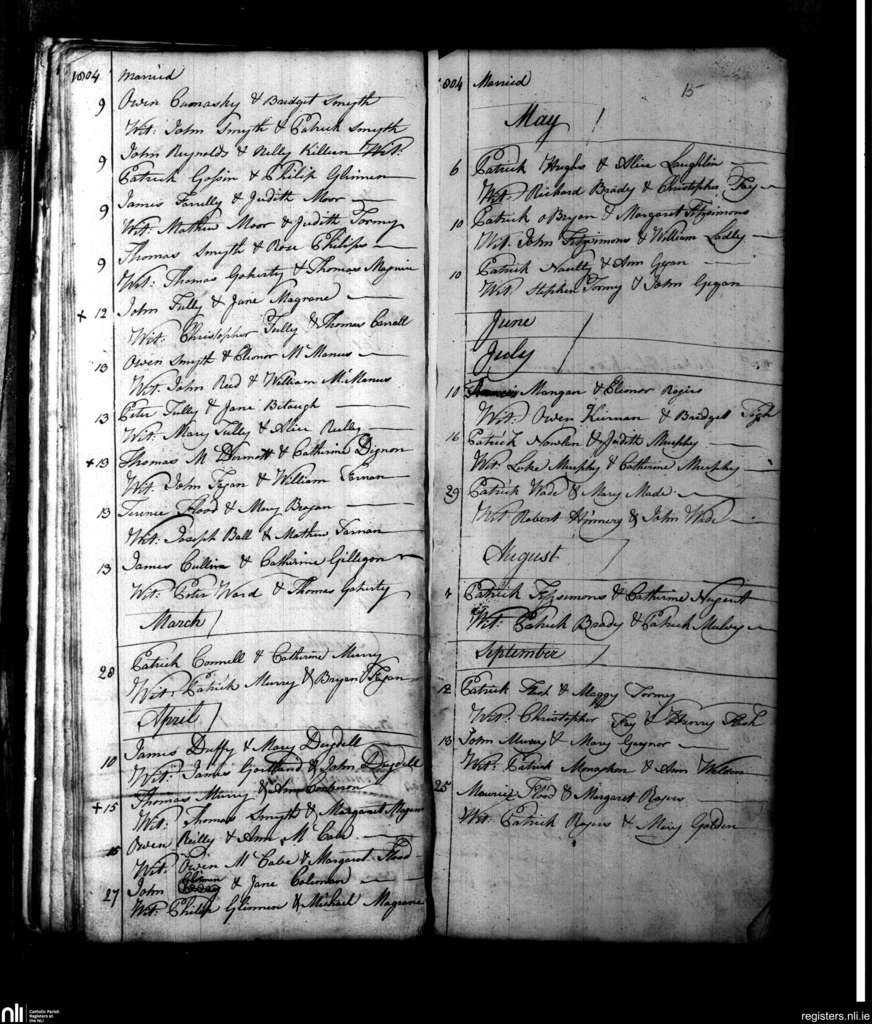 1804 Married
9 Owen Comasky & Bridget Smyth
Wit: John Smyth & Patrick Smyth
9 John Reynolds & Nelly Killian Wit:
Patrick Gossin & Philip Glinnen
9 James Farrelly & Judith Moor
Wit: Mathew Moor & Judith Tormy
9 Thomas Smyth & Rose Philips
Wit: Thomas Goherty & Thomas Maguire
+ 12 John Tully & Jane Magrane
Wit: Christopher Tully & Thomas Carrall
13 Owen Smyth & Elenor McManus
Wit. John Reed & William McManus
13 Peter Tully & Jane Bitaugh
Wit: Mary Tully & Alice Reilly
+ 13 Thomas McDermott & Catherine Dignon
Wit: John Fegan & William
13 Terence Flood & Mary Bryan
Wit: Joseph Ball & Mathew Farnan
13 James Cullin & Catherine Gilligon
Wit: Peter Ward & Thomas Goherty
March
28 Patrick Connell & Catherine Murry
Wit: Patrick Murry & Bryan Fegan
April
10 James Duffy & Mary Dugdell
Wit: James & John Dugdell
+ 15 Thomas Murry & Ann
Wit: Thomas Smyth & Margaret
15 Owen Reilly & Ann McCabe
Wit: Owen McCabe & Margaret Flood
27 John Glinnen & Jane Coleman
Wit: Philip Glinnen & Michael Magrane
1804 Married 15
May
6 Patrick Hughs & Alice Laughlin
Wit: Richard Brady & Christopher Fay
10 Patrick oBryan & Margaret Fitzsimons
Wit. John Fitzsimons & William Ladly
10 Patrick Naulty & Ann Gegan
Wit Stephen Tormy & John Gegan
June
July
10 Francis Mangan & Elenor Rogers
Wit: Owen Kiernan & Bridget
16 Patrick Nowlen & Judith Murphy
Wit: Luke Murphy & Catherine Murphy
29 Patrick Wade & Mary Made
Wit Robert & John Wade
August
Patrick Fitzsimons & Catherine Nugent
Wit: Patrick Brady & Patrick Mulvy
September
12 Patrick & Maggy Tormy
Wit: Christopher Fay & Henry
13 John & Mary Gaynor
Wit: Patrick Monaghan & Ann
25 Maurice Flood & Margaret Rogers
Wit: Patrick Rogers & Mary Golden
nli
Catholic Parish
Registers at
the NLI
registers.nli.ie